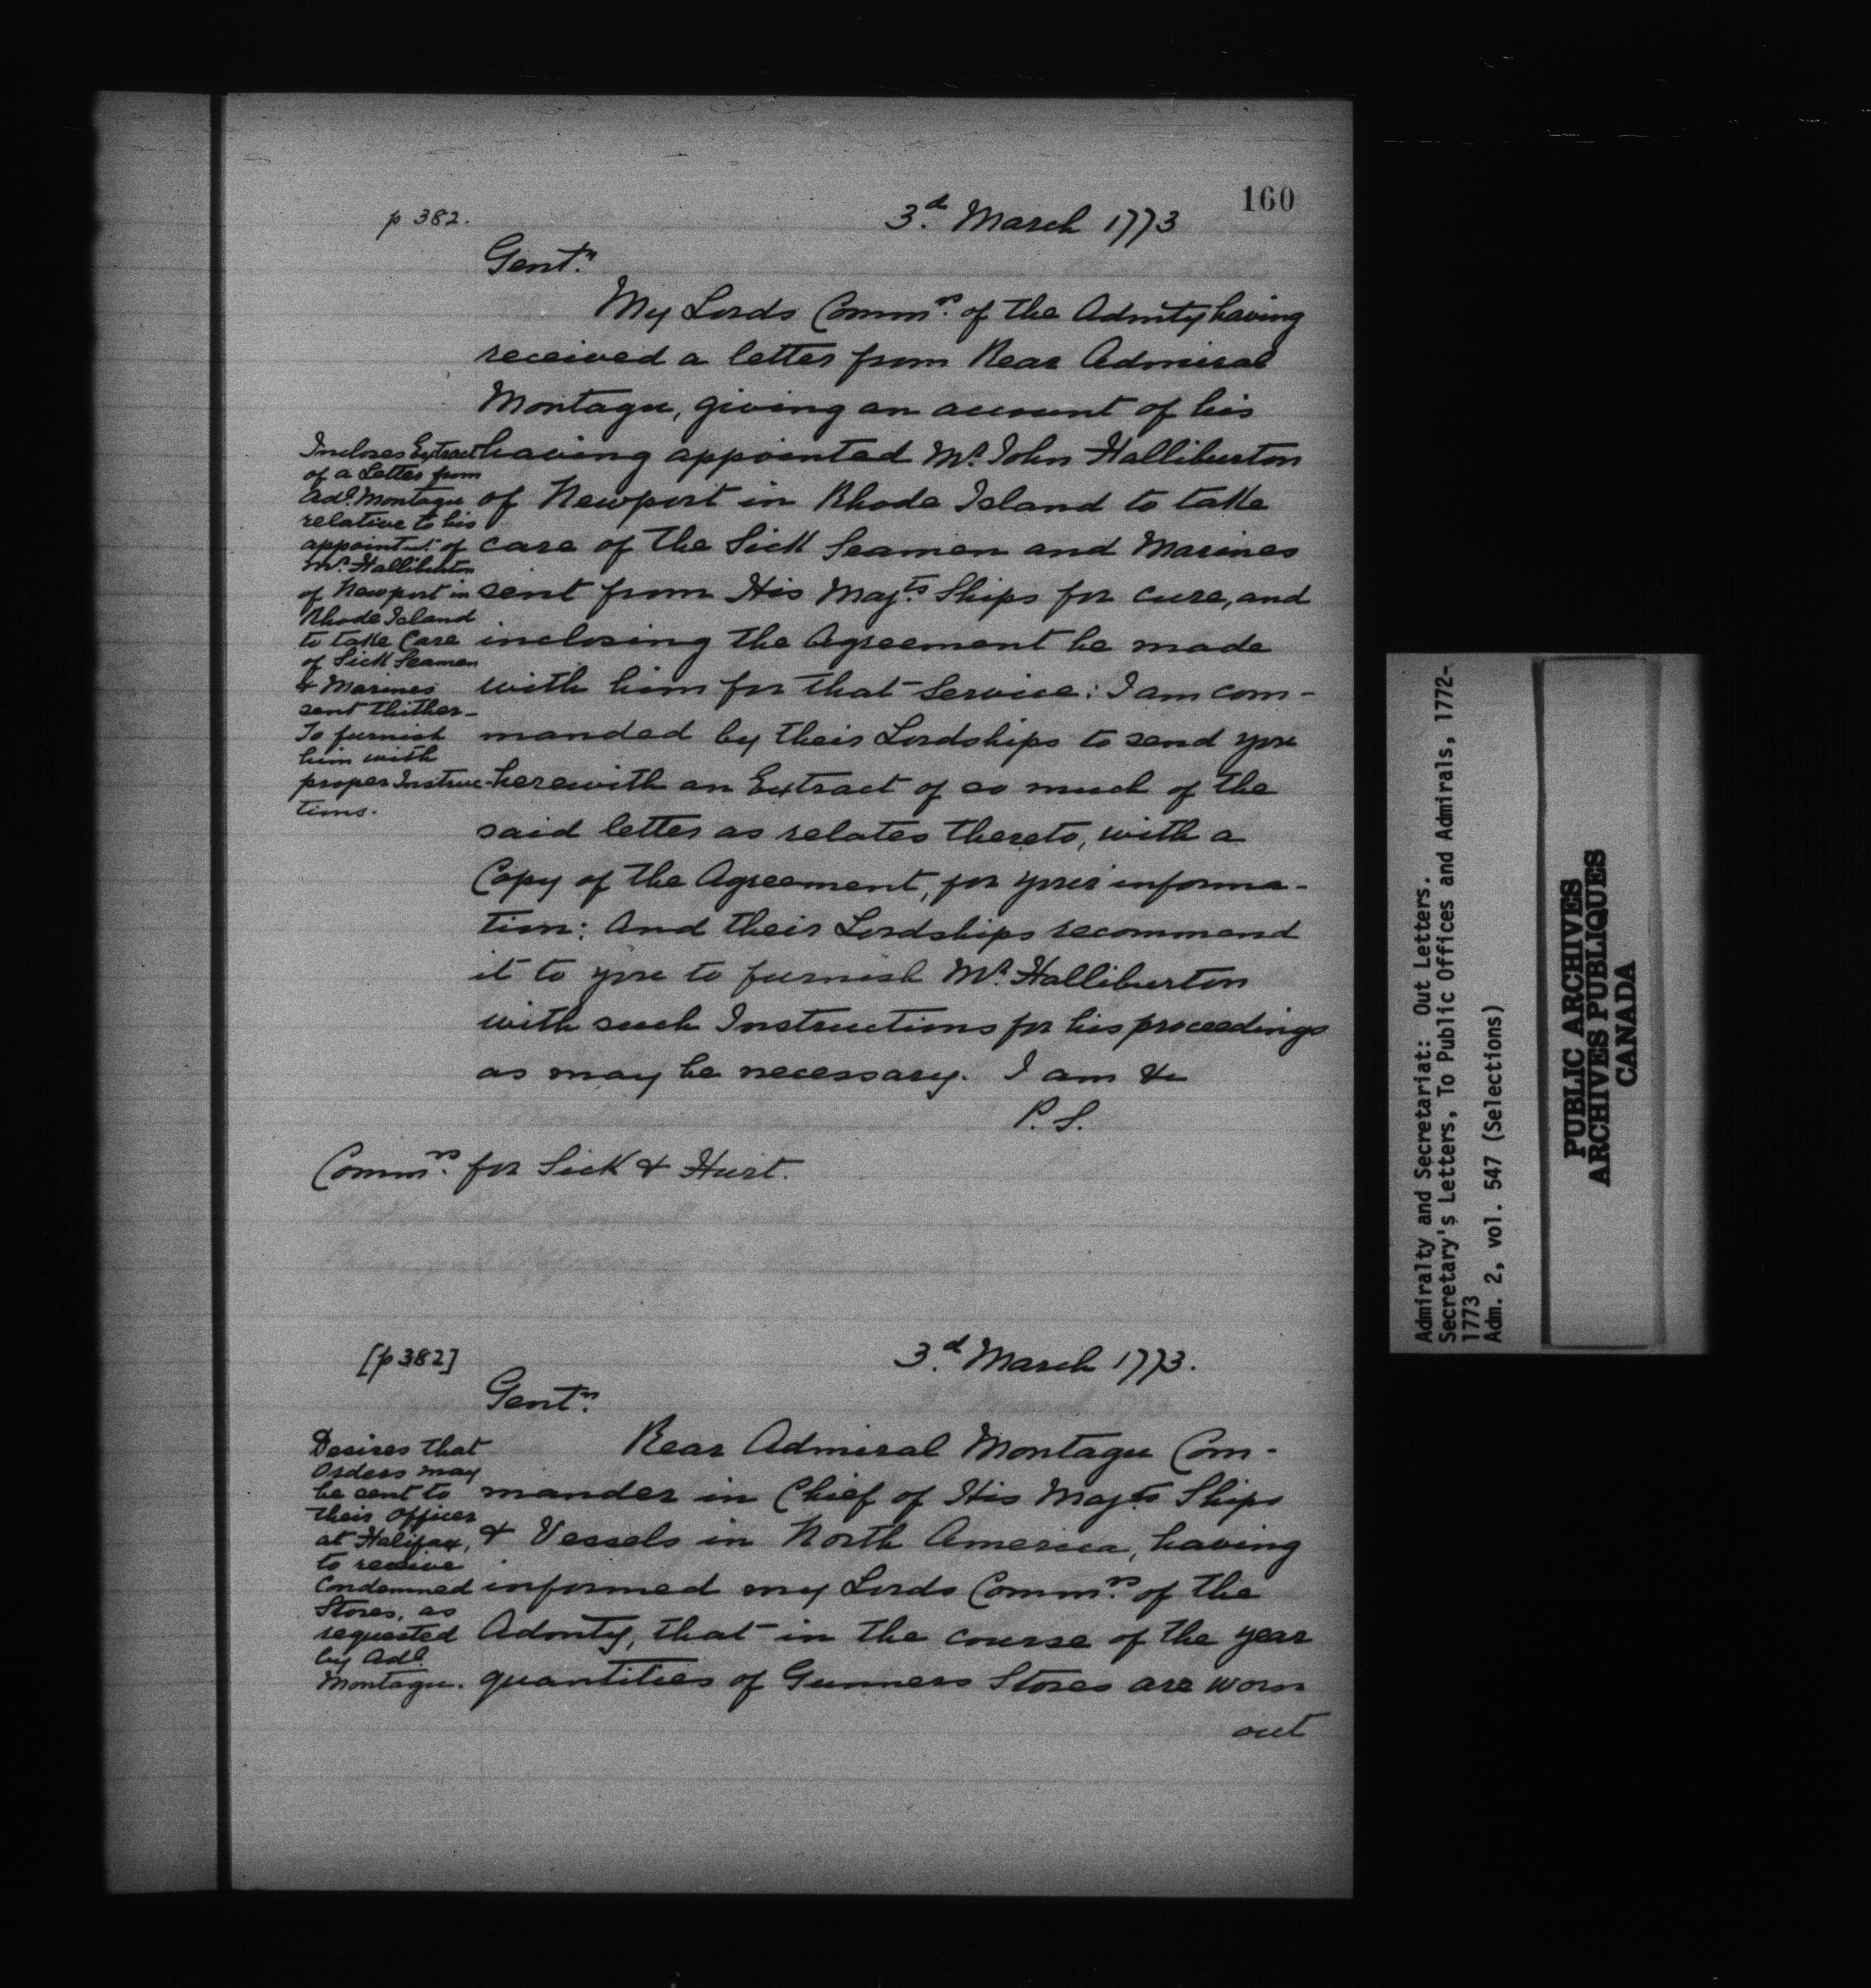 160
p 382.
3.d March 1773
Gent.n
My Lords Comm.rs of the Admty having
received a letter from Rear Admiral
Montagu, giving an account of his
having appointed Mr. John Halliburton
of Newport in Rhode Island to take
care of the Sick Seamen and Marines
sent from His Maj.ts Ships for cure, and
inclosing the Agreement he made
with him for that Service: I am com-
manded by their Lordships to send you
herewith an Extract of so much of the
said letter as relates thereto, with a
Copy of the Agreement, for your informa-
tion: And their Lordships recommend
it to you to furnish Mr. Halliburton
with such Instructions for his proceedings
as may be necessary. I am &c
P. S.
Incloses Extract
of a Letter from
Adl. Montagu
relative to his
appointmt. of
Mr. Halliburton
of Newport in
Rhode Island
to take Care
of Sick Seamen
& Marines
sent thither_
To furnish
him with
proper Instruc-
tions.
Comm.rs for Sick & Hurt.
[p 382]
3.d March 1773.
Gent.n
Rear Admiral Montagu Com-
mander in Chief of His Majts Ships
& Vessels in North America, having
informed my Lords Comm.rs of the
Admty, that in the course of the year
quantities of Gunners Stores are worn
out
Desires that
Orders may
be sent to
their Officer
at Halifax,
to receive
Condemned
Stores, as
requested
by Adl.
Montagu.
Admiralty and Secretariat: Out Letters.
Secretary's Letters, To Public Offices and Admirals, 1772-
1773
Adm. 2, vol. 547 (Selections)
PUBLIC ARCHIVES
ARCHIVES PUBLIQUES
CANADA